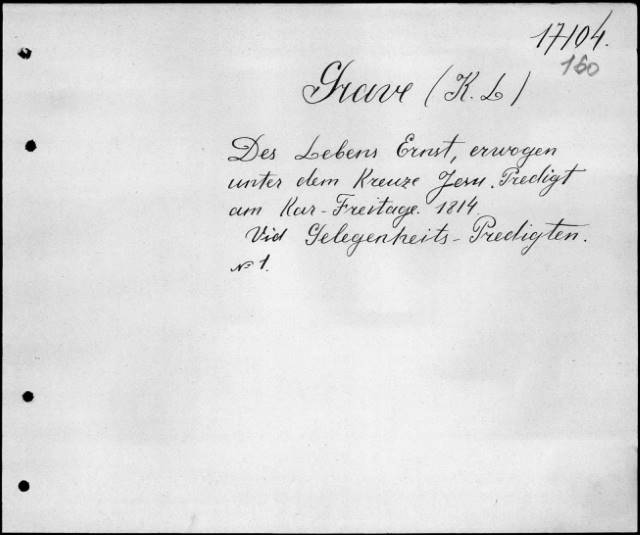 17104.
160
Grave (K. L)
Des Lebens Ernst, erwogen
unter dem Kreuze Jesu. Predigt
am Kar-Freitage. 1814
Vid Gelegenheits-Predigten.
№ 1.